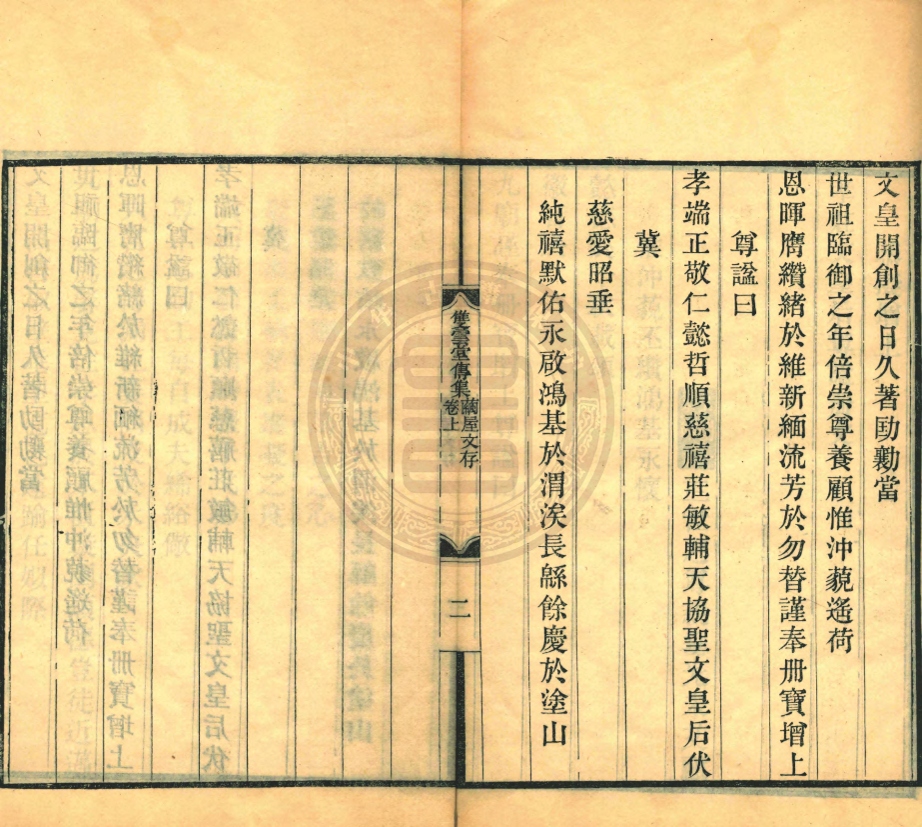 文皇開創之日久著劻勷當
世祖臨御之年倍崇尊養顧惟沖藐遙荷
恩暉膺纘緒於維新緬流芳於勿替謹奉册寶增上
尊諡曰
孝端正敬仁懿哲順慈禧莊敏輔天協聖文皇后伏
冀
慈愛昭垂
純禧默佑永啟鴻基於渭涘長緜餘慶於塗山
堂傳集
繭屋文存
卷上
二